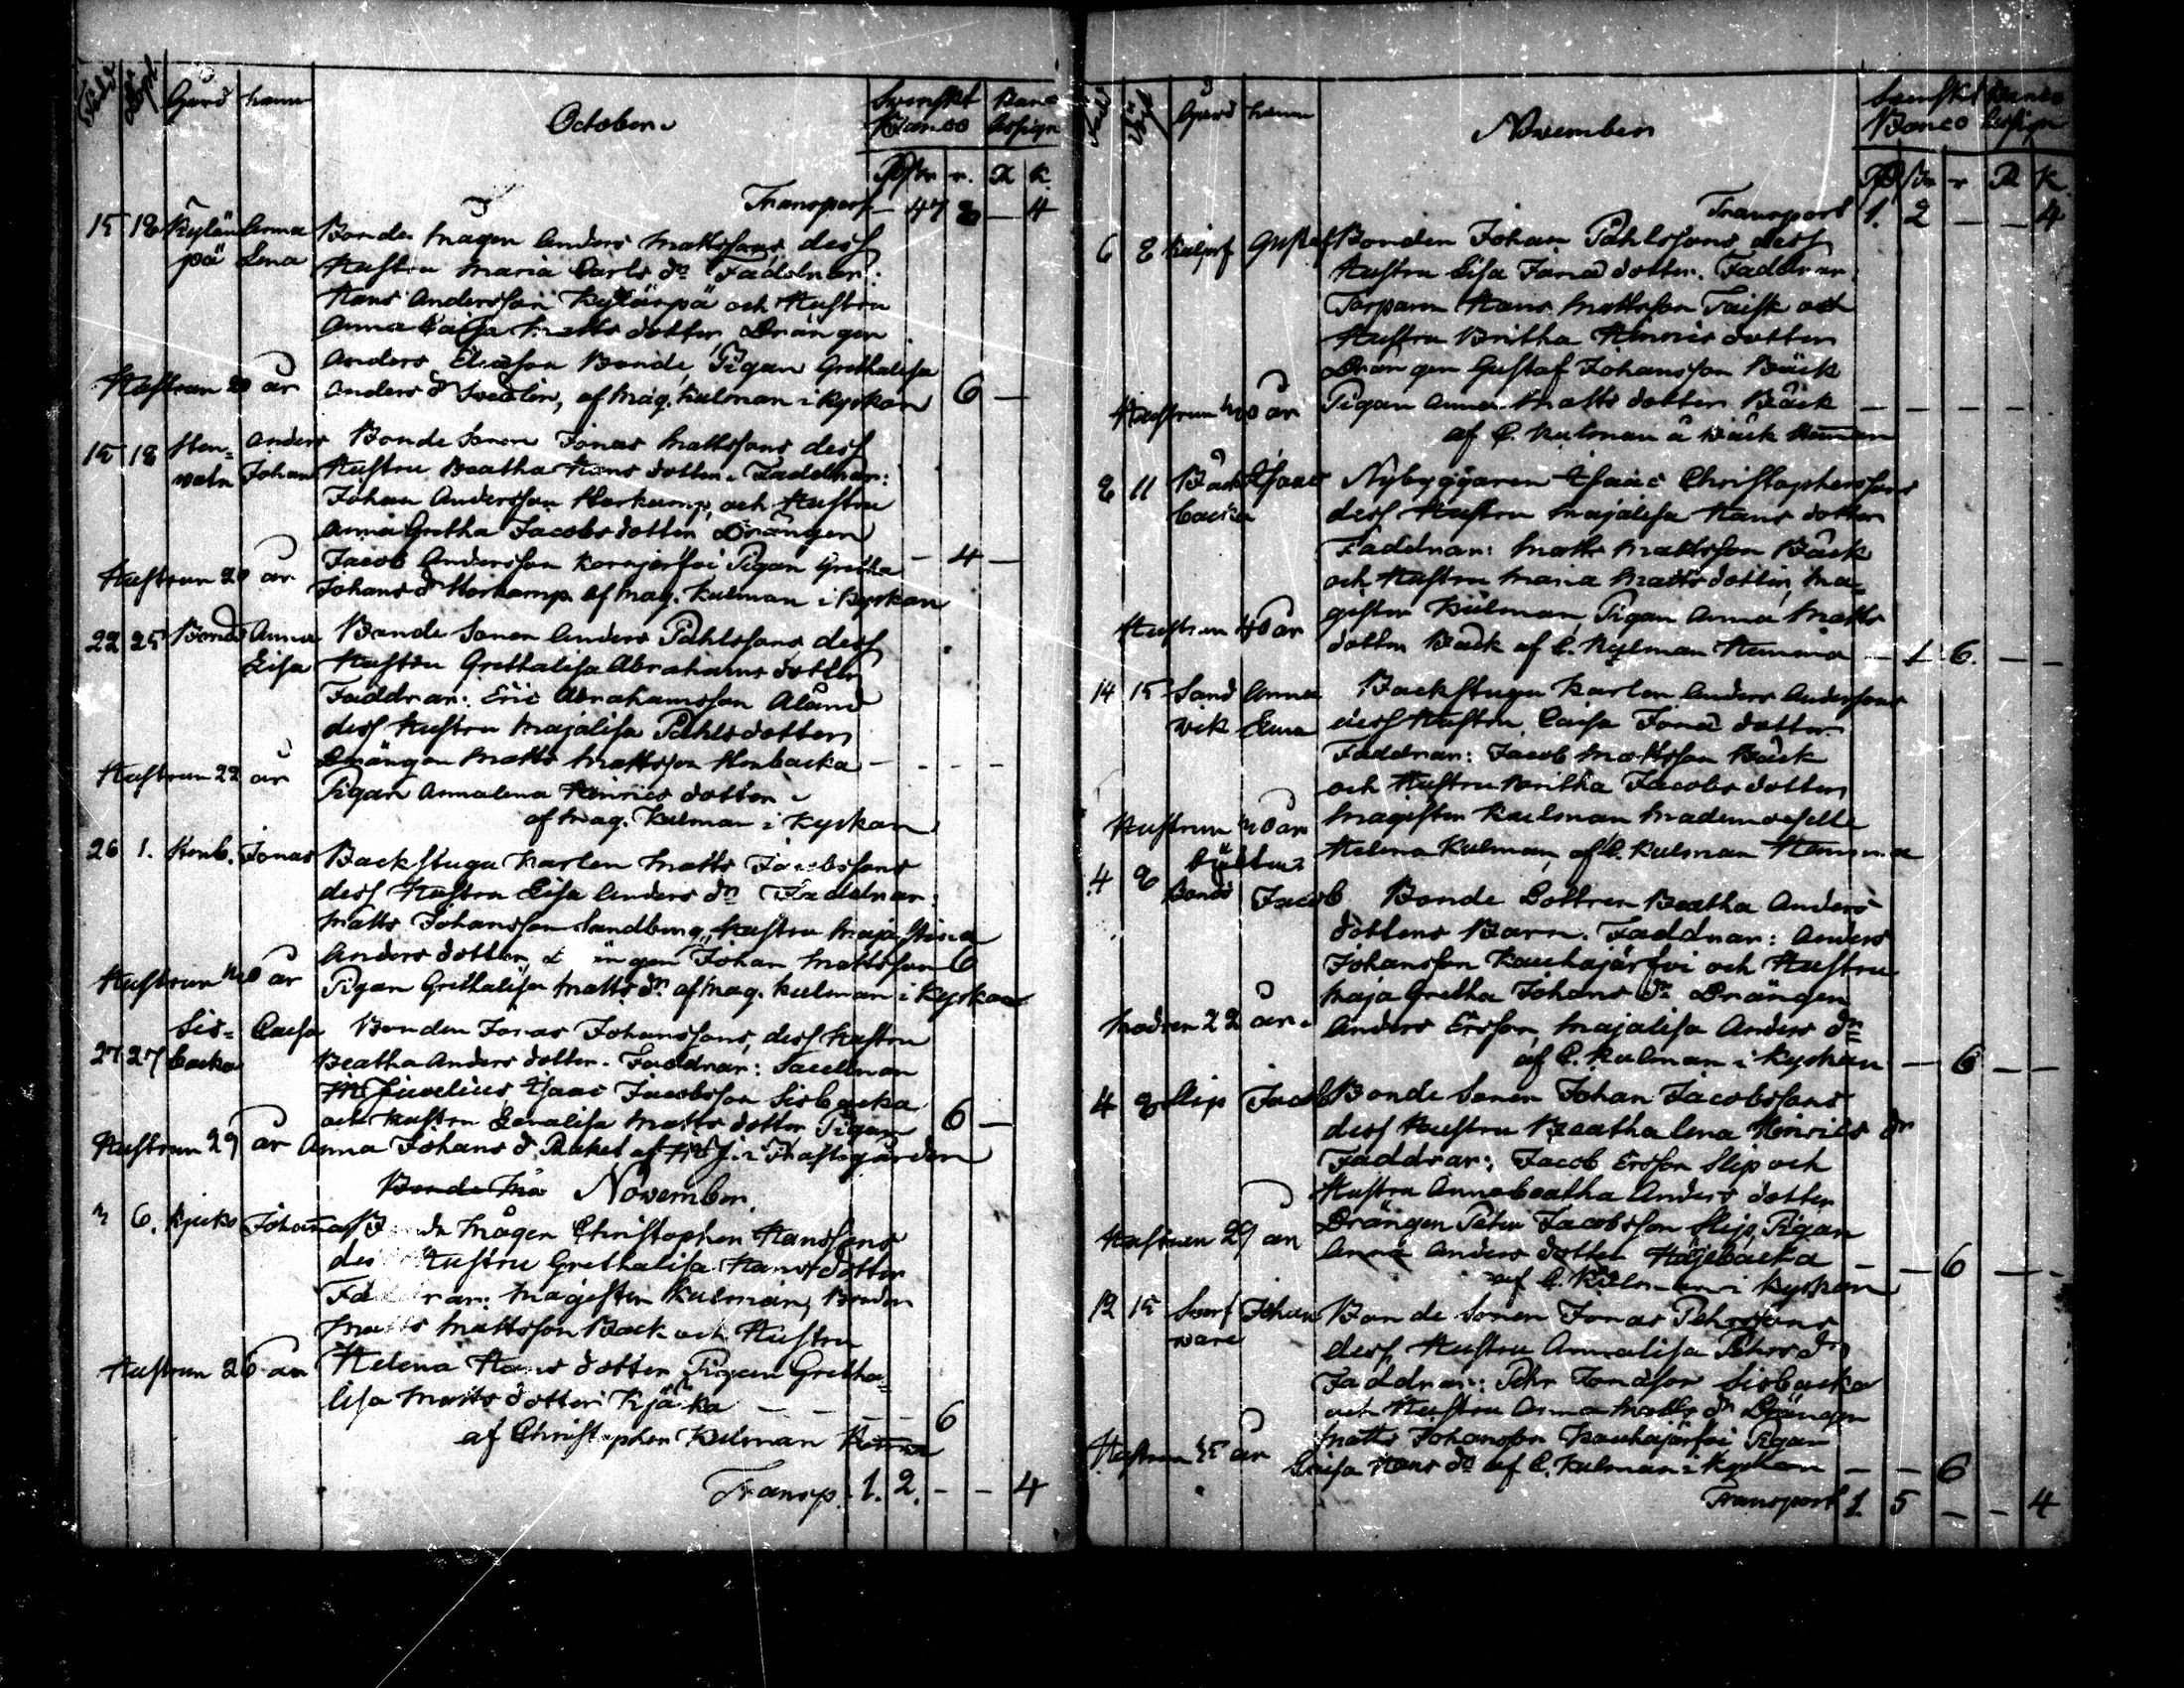 Född Döpt Gård hemn October Svenskt Banco Banc Assign
Rdr sk r. R K.
Transport - 47 8 - 4
15 18 Kylän Anna Bonde Mågen Anders Mattssons, dess
pä Lena Hustru Maria Carls dr Faddrar:
Hans Andersson Kylänpä och Hustru
Anna Caisa Matts dotter, Drängen
Anders Eliasson Bonde, Pigan Grethalisa
Hustrun 20 år Anders dr af Mag. Kulman i Kyrkan 6 -
15 18 Anders Bonde Sonen Jonas Mattssons dess
Johan Hustru Beatha Hans dotter. Faddrar:
Johan Andersson Horkamp, och Hustru
Anna Gretha Jacobs dotter Drängen
Jacob Andersson Pigan Gretha - 4 -
Hustrun 20 år Johans dr Horkamp. af Mag. Kulman i Kyrkan
22 25 Bonds Anna Bonde Sonen Anders Påhlssons dess
Lisa Hustru Grethalisa Abrahams dotter
Faddrar: Eric Abrahamsson Åland
dess Hustru Majalisa Påhlsdotter
Drängen Matts Mattsson Henbacka - - - -
Hustrun 22 år Pigan Annalena Henrics dotter
af Mag. Kulman i Kyrkan
26 1. Jonas Backstugu Karlen Matts Jacobssons
dess Hustru Lisa Anders dr Faddrar:
Matts Johansson Sandberg, Hustru Maja Stina
Anders dotter, ängen Johan Mattsson 6
Hustrun 40 år Pigan Grethalisa Matts dr af Mag. Kulman i Kyrkan
Sis- Caisa Bonden Jonas Johanssons, dess Hustru
27 27 backa Beatha Anders dotter. Faddrar: Sacellman
Isaac Jacobsson Sisbacka
och Hustru Lenalisa Matts dotter Pigan 6 -
Hustrun 29 år Anna Johans d. af i Prästgården
Bonde Må November.
6. Johannes de Mågen Christopher Hanssons
des Hustru Grethalisa Hans dotter
Fa rar: Magister Kulman, Bonden
Matts Mattsson Back och Hustru
Hustrun 26 år Helena Hans dotter, Pigan Gretha-
lisa Matts dotter - - - - 6
af Christopher Kulman
Transp. 1. 2. - - 4
Född Döpt Gård hemn November Svenskt Banco Banco Assign
Rdr sk r R K.
Transport 1. 2 - - 4
6 8 Gustaf Bonden Johan Påhlssons dess
Hustru Lisa Jonas dotter. Faddrar:
Torparen Hans Mattsson och
Hustru Britha Henrics dotter
Drängen Gustaf Johansson Bäck
Hustrun 40 år Pigan Anna Matts dotter Bäck - - - -
af C. Kulman å Bäck Hemman
8 11 Back Isaac Nybyggaren Isaac Christopherssons
backa dess Hustru Majalisa Hans dotter
Faddrar: Matts Mattsson Bäck
och Hustru Maria Matts dotter, Ma-
gister Kulman, Pigan Anna Matts
Hustrun 40 år dotter Bäck af C. Kulman Hemma - 1 6. - -
14 15 Sand Anna Backstugu Karlen Anders Anderssons
vik Lena dess Hustru Caisa Jonas dotter.
Faddrar: Jacob Mattsson Bäck
och Hustru Britha Jacobs dotter
Hustrun 40 år Magister Kulman Mademoiselle
Helena Kulman af C. Kulman Hemma
4 8 Bonds Jacob Bonde Dottren Beatha Anders
dottens Barn. Faddrar: Anders
Johansson Kauhajärfvi och Hustru
Maja Gretha Johans dr Drängen
Modren 22 år Anders Ersson, Majalisa Anders dr
af C. Kulman i Kyrkan - 6 - -
4 8 Slip Jacob Bonde Sonen Johan Jacobssons
dess Hustru Beatha lena Henrics dr
Faddrar: Jacob Ersson Slip och
Hustru Annabeatha Anders dotter
Drängen Peter Jacobsson Slip, Pigan
Hustrun 29 år Anna Anders dotter - - 6 - -
af C. Kulman i Kyrkan
12 15 Johan Bonde Sonen Jonas Pehrssons
dess Hustru Annalisa Pehrs dr
Faddrar: Pehr Jonasson Sisbacka
och Hustru Anna Matts dr Drängen
Matts Johansson Kauhajärfvi, Pigan
Hustrun 45 år Caisa Hans dr af C. Kulman i Kyrkan - - 6
Transport 1 5 - - 4